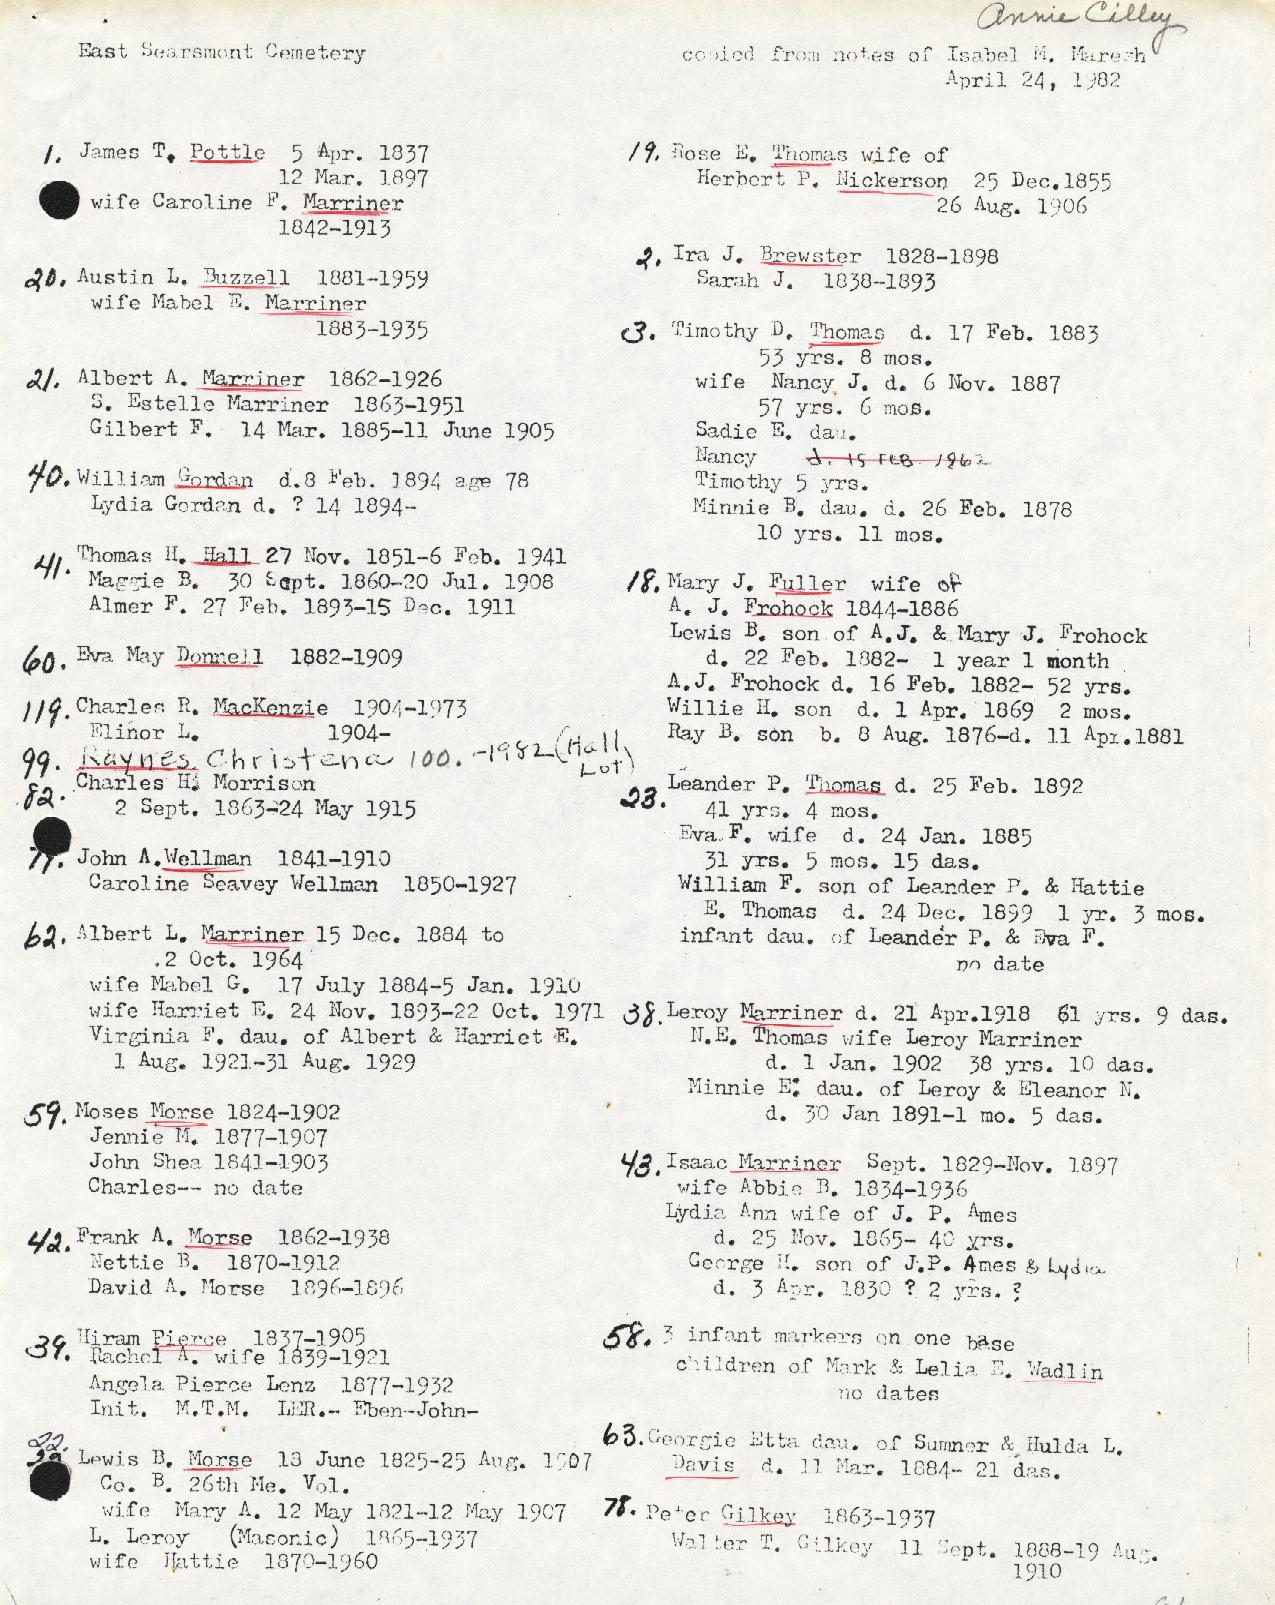 Annie Cilley
East Searsmont Cemetery
copied from notes of Isabel M. Maresh
April 24, 1982
1. James T. Pottle 5 Apr. 1837
12 Mar. 1897
wife Caroline F. Marriner
1842-1913
20. Austin L. Buzzell 1881-1959
wife Mabel E. Marriner
1883-1935
21. Albert A. Marriner 1862-1926
S. Estelle Marriner 1863-1951
Gilbert F. 14 Mar. 1885-11 June 1905
40. William Gordan d.8 Feb. 1894 age 78
Lydia Gordan d. ? 14 1894-
41. Thomas H. Hall 27 Nov. 1851-6 Feb. 1941
Maggie B. 30 Sept. 1860-20 Jul. 1908
Almer F. 27 Feb. 1893-15 Dec. 1911
60. Eva May Donnell 1882-1909
119. Charles R. MacKenzie 1904-1973
Elinor L. 1904-
99. Raynes Christena 100. -1982 (Hall Lot)
82. Charles H. Morrison
2 Sept. 1863-24 May 1915
77. John A. Wellman 1841-1910
Caroline Seavey Wellman 1850-1927
62. Albert L. Marriner 15 Dec. 1884 to
.2 Oct. 1964
wife Mabel G. 17 July 1884-5 Jan. 1910
wife Harriet E. 24 Nov. 1893-22 Oct. 1971
Virginia F. dau. of Albert & Harriet E.
1 Aug. 1921-31 Aug. 1929
59. Moses Morse 1824-1902
Jennie M. 1877-1907
John Shea 1841-1903
Charles-- no date
42. Frank A. Morse 1862-1938
Nettie B. 1870-1912
David A. Morse 1896-1896
39. Hiram Pierce 1837-1905
Rachel A. wife 1839-1921
Angela Pierce Lenz 1877-1932
Init. M.T.M. LER.- Eben--John-
22. Lewis B. Morse 18 June 1825-25 Aug. 1907
Co. B. 26th Me. Vol.
wife Mary A. 12 May 1821-12 May 1907
L. Leroy (Masonic) 1865-1937
wife Hattie 1870-1960
19. Rose E. Thomas wife of
Herbert P. Nickerson 25 Dec.1855
26 Aug. 1906
2. Ira J. Brewster 1828-1898
Sarah J. 1838-1893
3. Timothy D. Thomas d. 17 Feb. 1883
53 yrs. 8 mos.
wife Nancy J. d. 6 Nov. 1887
57 yrs. 6 mos.
Sadie E. dau.
Nancy d. 15 FEB. 1962
Timothy 5 yrs.
Minnie B. dau. d. 26 Feb. 1878
10 yrs. 11 mos.
18. Mary J. Fuller wife of
A. J. Frohock 1844-1886
Lewis B. son of A.J. & Mary J. Frohock
d. 22 Feb. 1882- 1 year 1 month
A.J. Frohock d. 16 Feb. 1882- 52 yrs.
Willie H. son d. 1 Apr. 1869 2 mos.
Ray B. son b. 8 Aug. 1876-d. 11 Apr.1881
23. Leander P. Thomas d. 25 Feb. 1892
41 yrs. 4 mos.
Eva.F. wife d. 24 Jan. 1885
31 yrs. 5 mos. 15 das.
William F. son of Leander P. & Hattie
E. Thomas d. 24 Dec. 1899 1 yr. 3 mos.
infant dau. of Leander P. & Eva F.
no date
38. Leroy Marriner d. 21 Apr.1918 61 yrs. 9 das.
N.E. Thomas wife Leroy Marriner
d. 1 Jan. 1902 38 yrs. 10 das.
Minnie E. dau. of Leroy & Eleanor N.
d. 30 Jan 1891-1 mo. 5 das.
43. Isaac Marriner Sept. 1829-Nov. 1897
wife Abbie B. 1834-1936
Lydia Ann wife of J. P. Ames
d. 25 Nov. 1865- 40 yrs.
George H. son of J.P. Ames & Lydia
d. 3 Apr. 1830 ? 2 yrs. ?
58. 3 infant markers on one base
children of Mark & Lelia E. Wadlin
no dates
63. Georgie Etta dau. of Sumner & Hulda L.
Davis d. 11 Mar. 1884- 21 das.
78. Peter Gilkey 1863-1937
Walter T. Gilkey 11 Sept. 1888-19 Aug.
1910